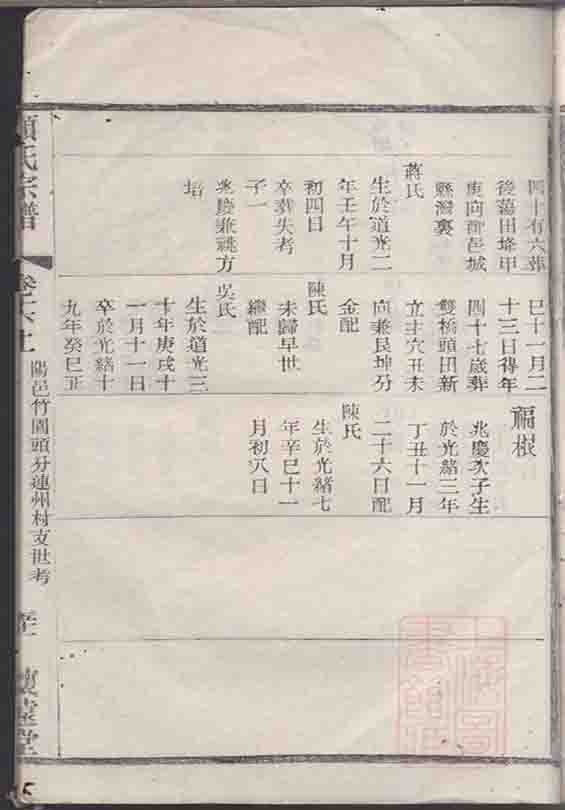 四十有六葬
後蕩田塍甲
庚向邑城
縣灣裏
蔣氏
生於道光二
年壬午十月
初四日
卒葬失考
子一
兆慶兼祧方
培
巳十一月二
十三日得年
四十七歲葬
雙橋頭田新
立主穴丑未
向兼艮坤分
金配
陳氏
未歸早世
繼配
吳氏
生於道光三
十年庚戌十
一月十一日
卒於光緒十
九年癸巳正
福根
兆慶次子生
於光緒三年
丁丑十一月
二十六日配
陳氏
生於光緒七
年辛巳十一
月初八日
氏宗譜
卷六上
陽邑竹園頭分連州村支世考
堂
上海圖書館藏